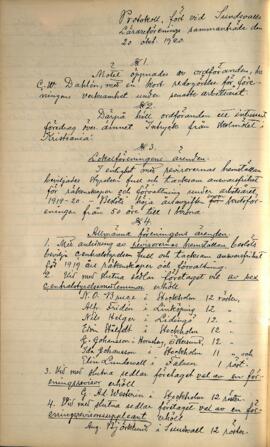 Protokoll, förd vid Sundsvalls
Lärareförenings sammanträde den
20 okt. 1920.
§ 1.
Mötet öppnades av ordföranden,
C. W. Dahlén, med en kort redogörelse för före-
ningens verksamhet under senaste arbetsåret.
§ 2.
Därpå höll ordföranden ett intressant
föredrag över ämnet Intryck från skolmötet i
Kristiania.
§ 3.
Lokalföreningens ärenden.
I enlighet med revisorernas hemställan
beviljades styrelsen full och tacksam ansvarsfrihet
för räkenskaper och förvaltning under arbetsåret
1919-20. - Beslöts höja årsavgiften
föreningen från 50 öre till 1 krona.
§ 4.
Allmänna föreningens ärenden.
1. Med anledning av revisorernas hemställan beslöts
bevilja centralstyrelsen full och tacksam ansvarsfrihet
för 1919 års räkenskaper och förvaltning.
2. Vid med slutna sedlar företaget val av sex
centralstyrelsemedlemmar erhöll
K. O. Bruce i Stockholm 12 röster,
Alb. Fridén i Linköping 12 "
Nils Helger i Lidingö 12 "
Edv. i Stockholm 12 "
G. Johansson i 12 "
Johansson i Stockholm 11 " och
Elis Lundewall i 1 röst.
3. Vid med slutna sedlar företaget val av en för-
eningsrevisor erhöll
G. Ad Westerin i Stockholm 12 röster.
4. Vid med slutna sedlar företaget val av en för-
eningsrevisorssuppleant erhöll
Aug. Björklund i Sundsvall 12 röster.